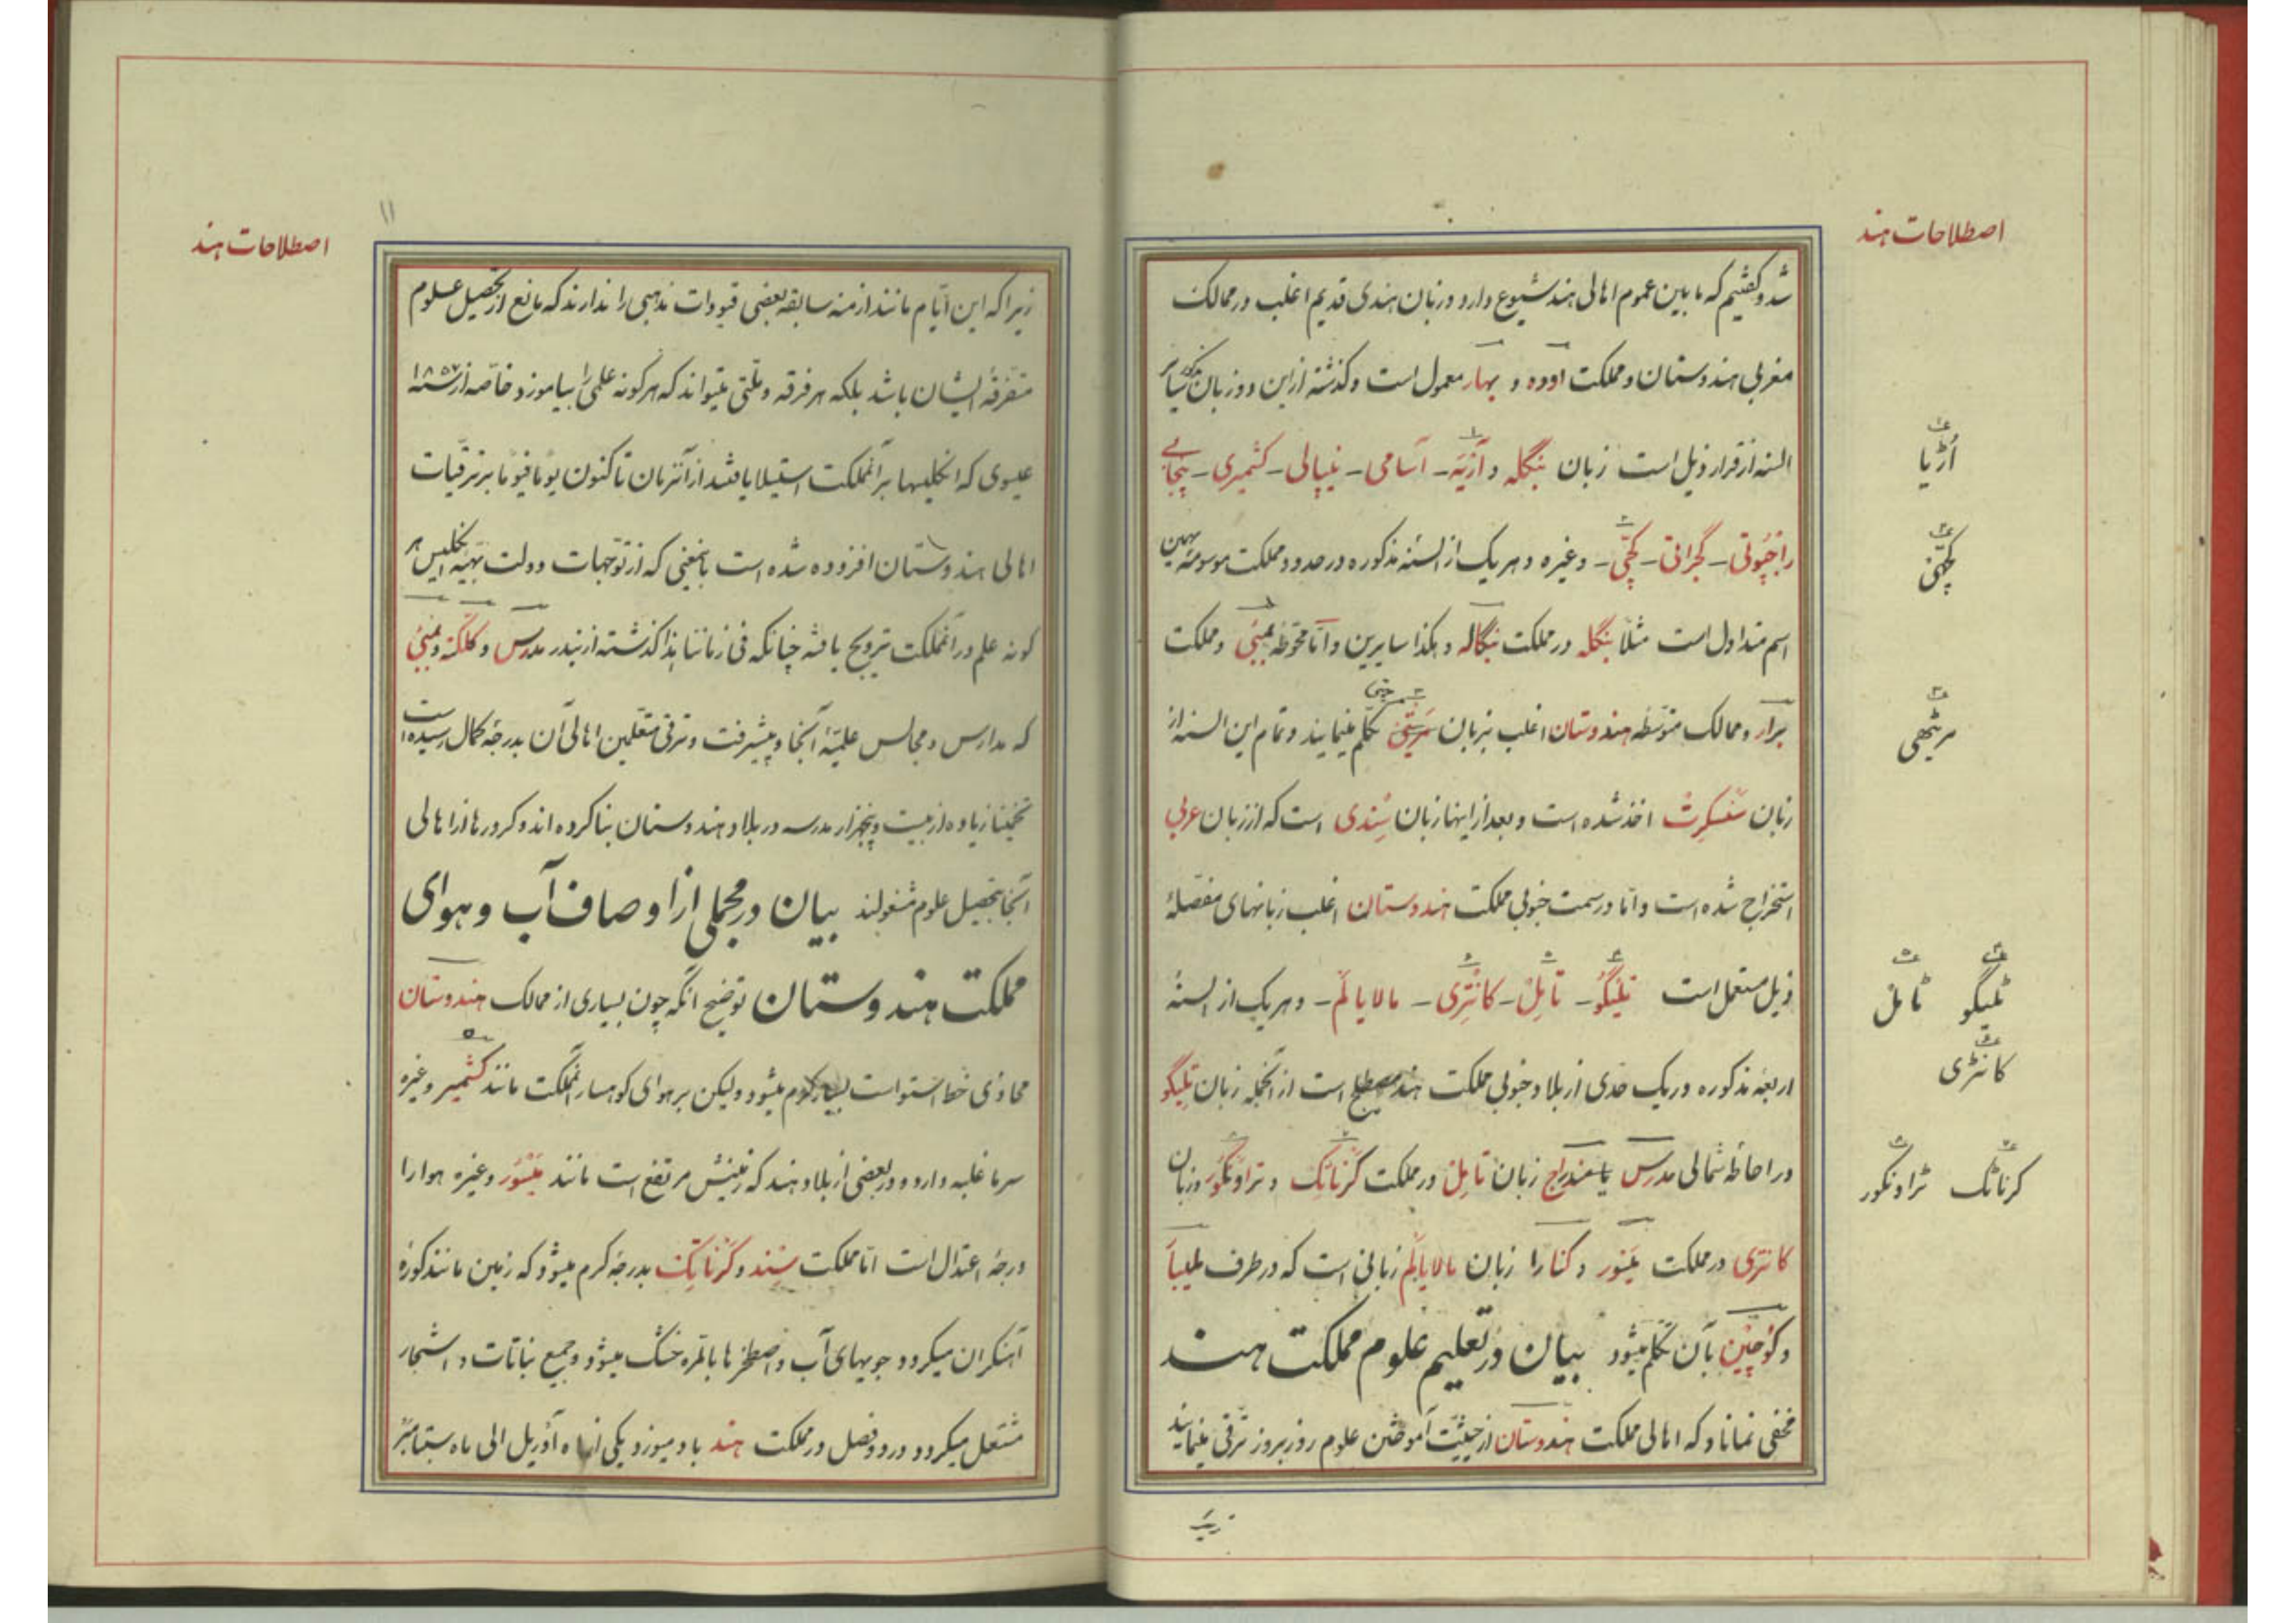 اصطلاحات هند
شد و گفتیم که مابین عموم اهالی هند شیوع دارد و زبان هندی قدیم اغلب در ممالک
مغربی هندوستان و مملکت اووه و بهار معمول است و گذشته از این دو زبان
السنه از قرار ذیل است زبان بنگله و آرّیَه - آسامی - نیپالی - کشمیری - پنجابی
راجپوتی - گجراتی - کچّی - و غیره و هر یک از السنه مذکوره در حدود مملکت موسومه بهمین
اسم متداول است مثلاً بنگله در مملکت بنگاله و هکذا سایرین و امّا محوطه بمبئی و مملکت
برار و ممالک متوسطه هندوستان اغلب بزبان تکلم مینمایند و تمام این السنه از
زبان سنسکرت اخذ شده است و بعد از اینها زبان سندی است که از زبان عربی
استخراج شده است و امّا در سمت جنوبی مملکت هندوستان اغلب زبانهای مفصلهٔ
ذیل مستعمل است تیلیگو - تامِل - کانتری - مالایالَم - و هر یک از السنهٔ
اربعه مذکوره در یک حدی از بلاد جنوبی مملکت هند مصطلح است از آنجمله زبان تلیگو
در احاطه شمالی مدرس یا مندراج زبان تامِل در مملکت کرناتک و تراونکور و زبان
کانتری در مملکت میسور و کنارا زبان مالایالَم زبانی است که در طرف ملیبا
و کوچین بآن تکلم میشود بیان در تعلیم علوم مملکت هند
مخفی نماناد که اهالی مملکت هندوستان از حیثیت آموختن علوم روز بروز ترقی مینمایند
اُڑیا
کچھی
مرٹھی
ٹلیگو ٹامل
کانٹری
کرناٹک ٹراونکور
زیرا
۱۱
اصطلاحات هند
زیرا که این ایّام مانند ازمنه سابقه بعضی قیودات مذهبی را ندارند که مانع از تحصیل علوم
متفرقه ایشان باشد بلکه هر فرقه و ملّتی میتواند که هرگونه علمی را بیاموزد خاصّه از سنه ۱۸۵۷
عیسوی که انگلیسها بر آنمملکت استیلا یافتند از آنزمان تاکنون یوماً فیوماً بر ترقیات
اهالی هندوستان افزوده شده است بامعنی که از توجهات دولت بهیّه انگلیس هر
گونه علم در آنمملکت ترویج یافته چنانکه فی زماننا هذا گذشته از بندر مدرس و کلکته و بمبئی
که مدارس و مجالس علمیّه آنجا و پیشرفت و ترقی متعلمین اهالی آن بدرجه کمال رسیده است
تخمیناً زیاده از بیست و پنجهزار مدرسه در بلاد هندوستان بنا کرده اند و کرورها از اهالی
آنجا بتحصیل علوم مشغولند بیان در مجملی از اوصاف آب و هوای
مملکت هندوستان توضیح آنکه چون بسیاری از ممالک هندوستان
محاذی خط استواست بسیار گرم میشود ولیکن بر هوای کوهسار آنمملکت مانند کشمیر و غیره
سرما غلبه دارد و در بعضی از بلاد هند که زمینش مرتفع است مانند میسور و غیره هوا را
درجهٔ اعتدال است امّا مملکت سند و کرناتک بدرجه گرم میشود که زمین مانند کورهٔ
آهنگران میگردد جویهای آب و اصطخرها بالمره خشک میشود و جمیع نباتات و اشجار
مشتعل میگردد در دو فصل در مملکت هند باد میوزد یکی از ماه آوریل الی ماه سبتامبر